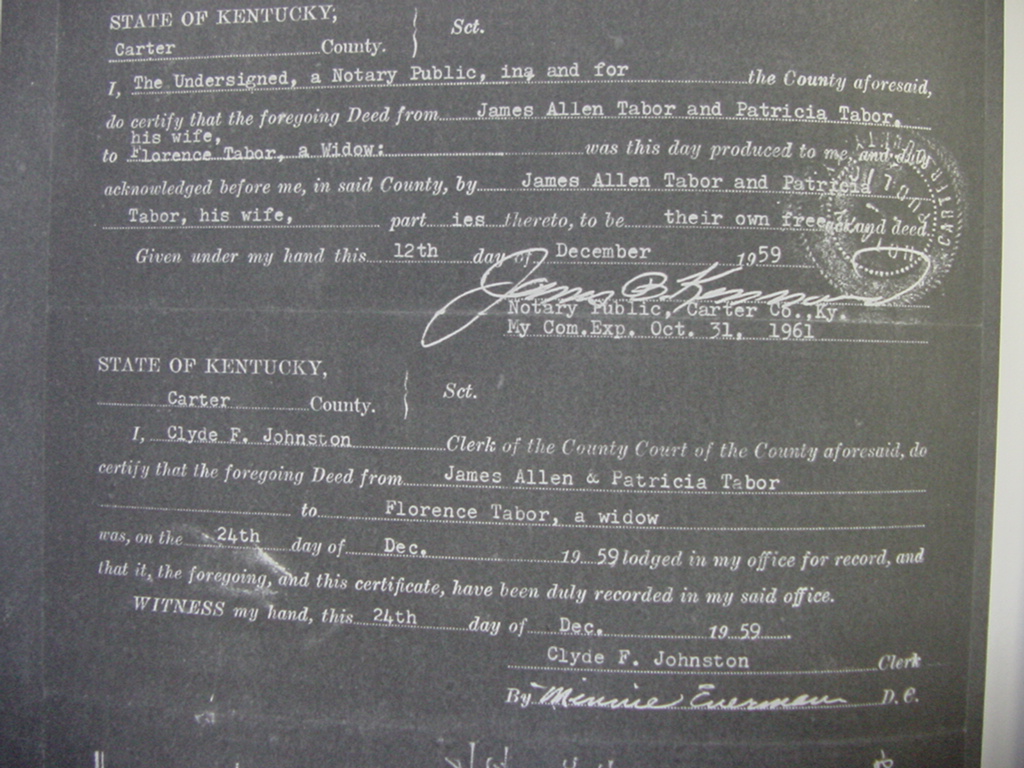 STATE OF KENTUCKY,
Carter County. Sct.
I, The Undersigned, a Notary Public, in and for the County aforesaid,
do certify that the foregoing Deed from James Allen Tabor and Patricia Tabor,
his wife,
to Florence Tabor, a Widow: was this day produced to me, and duly
acknowledged before me, in said County, by James Allen Tabor and Patricia
Tabor, his wife, part ies thereto, to be their own free act and deed.
Given under my hand this 12th day of December 1959
James
Notary Public, Carter Co., Ky.
My Com.Exp. Oct. 31, 1961
STATE OF KENTUCKY,
Carter County. Sct.
I, Clyde F. Johnston Clerk of the County Court of the County aforesaid, do
certify that the foregoing Deed from James Allen & Patricia Tabor
to Florence Tabor, a widow
was, on the 24th day of Dec. 19 59 lodged in my office for record, and
that it, the foregoing, and this certificate, have been duly recorded in my said office.
WITNESS my hand, this 24th day of Dec. 19 59
Clyde F. Johnston Clerk
By Minnie Everman D. C.